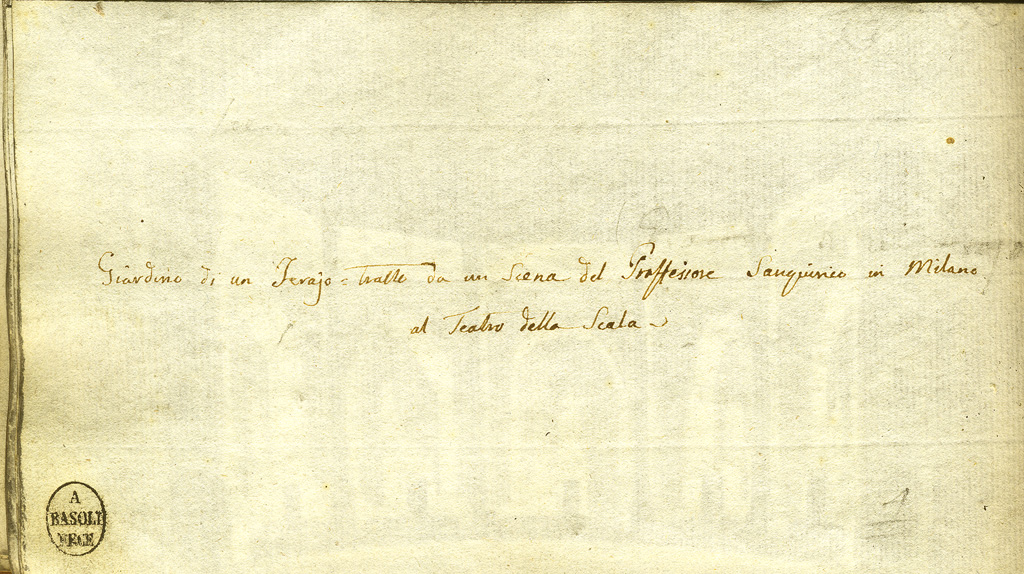 Giardino di un Serajo = tratto da un Scena del Proffessore Sanquirico in Milano
al Teatro della Scala
A
BASOLI
FECE